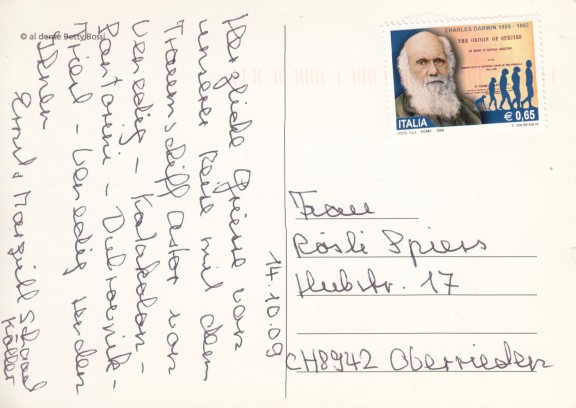 © al dente Betty Bossi
14.10.09
Herzliche Grüsse von
unserer Reise mit dem
Traumschiff Astor von
Venedig - Katakolon -
Santorini - Dubrovnik -
Triest - Venedig senden
Ihnen
Ernst + Margrit
CHARLES DARWIN 1809 - 1882
THE ORIGIN OF SPECIES
ITALIA
€ 0,65
Frau
Rösli Spiess
Hubstr. 17
CH8942 Oberrieden